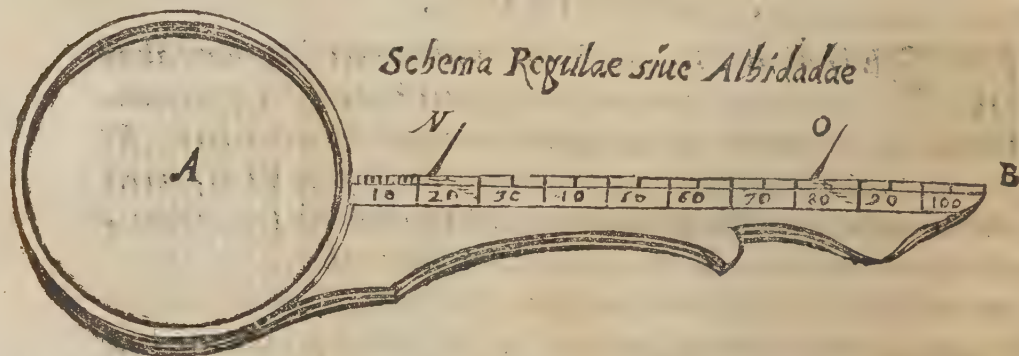 Schema Regulae siue Albidadae
N O
A B
10 20 30 10 50 60 70 80 90 100